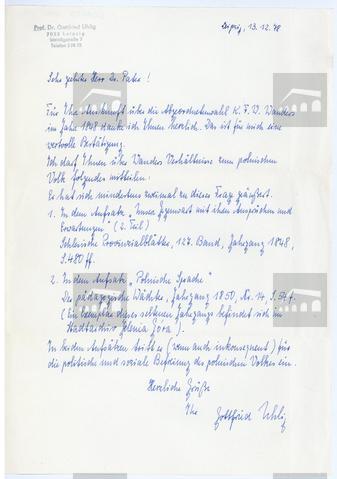 Prof. Dr. Gottfried Uhlig
7022 Leipzig
Leipzig, 13.12.78
Sehr geehrter Herr Dr. Pater!
Für Ihre Auskunft über die Abgeordnetenwahl K. F. W. Wanders
im Jahre 1848 danke ich Ihnen herzlich. Das ist für mich eine
wertvolle Bestätigung.
Ich darf Ihnen über Wanders Verhältnisse zum polnischen
Volk folgendes mitteilen:
Er hat sich mindestens zweimal zu dieser Frage geäußert.
1. In dem Aufsatz "Unsere Gegenwart mit ihren Ansprüchen und
Erwartungen" (2. Teil)
Schlesische Provinzialblätter, 127. Band, Jahrgang 1848,
S. 480 ff.
2. In dem Aufsatz "Polnische Sprache"
Der pädagogische Wächter, Jahrgang 1850, No. 14, S. 54 f.
(Ein Exemplar dieses seltenen Jahrgangs befindet sich im
Stadtarchiv Jelenia Góra.)
In beiden Aufsätzen tritt er (wenn auch inkonsequent) für
die politische und soziale Befreiung des polnischen Volkes ein.
Herzliche Grüße
Ihr
Gottfried Uhlig